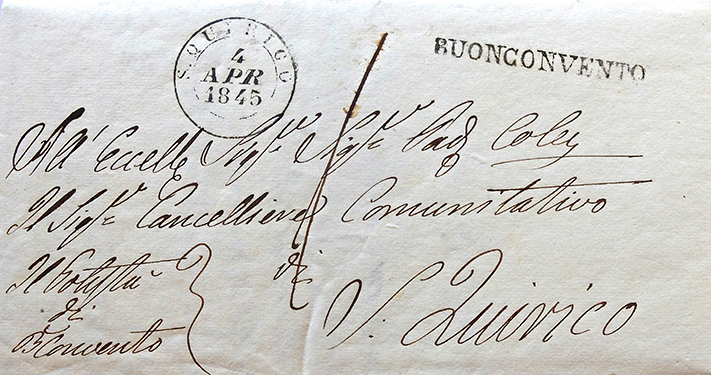 S. QUIRICO
4
APR
1845
BUONCONVENTO
All' Eccellō Sigʳᵉ Sigʳᵉ Pad Coley
Il Sigʳᵉ Cancelliere Comunitativo
di
S. Quirico
Il Potestà
di
BConvento